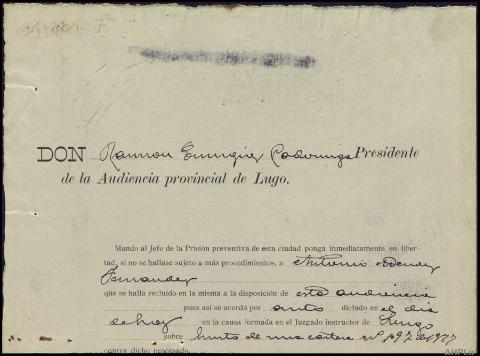 DON Ramon Enriquez Cadorniga Presidente
de la Audiencia provincial de Lugo.
Mando al Jefe de la Prisión preventiva de esta ciudad ponga inmediatamente en liber-
tad, si no se hallase sujeto a más procedimientos, a Antonio Mendez
Fernandez
que se halla recluído en la misma a disposición de esta audiencia
pues así se acordó por auto dictado en el dia
de hoy en la causa formada en el Juzgado instructor de Lugo
sobre hurto de una cartera nº 197 de 1927
contra dicho procesado